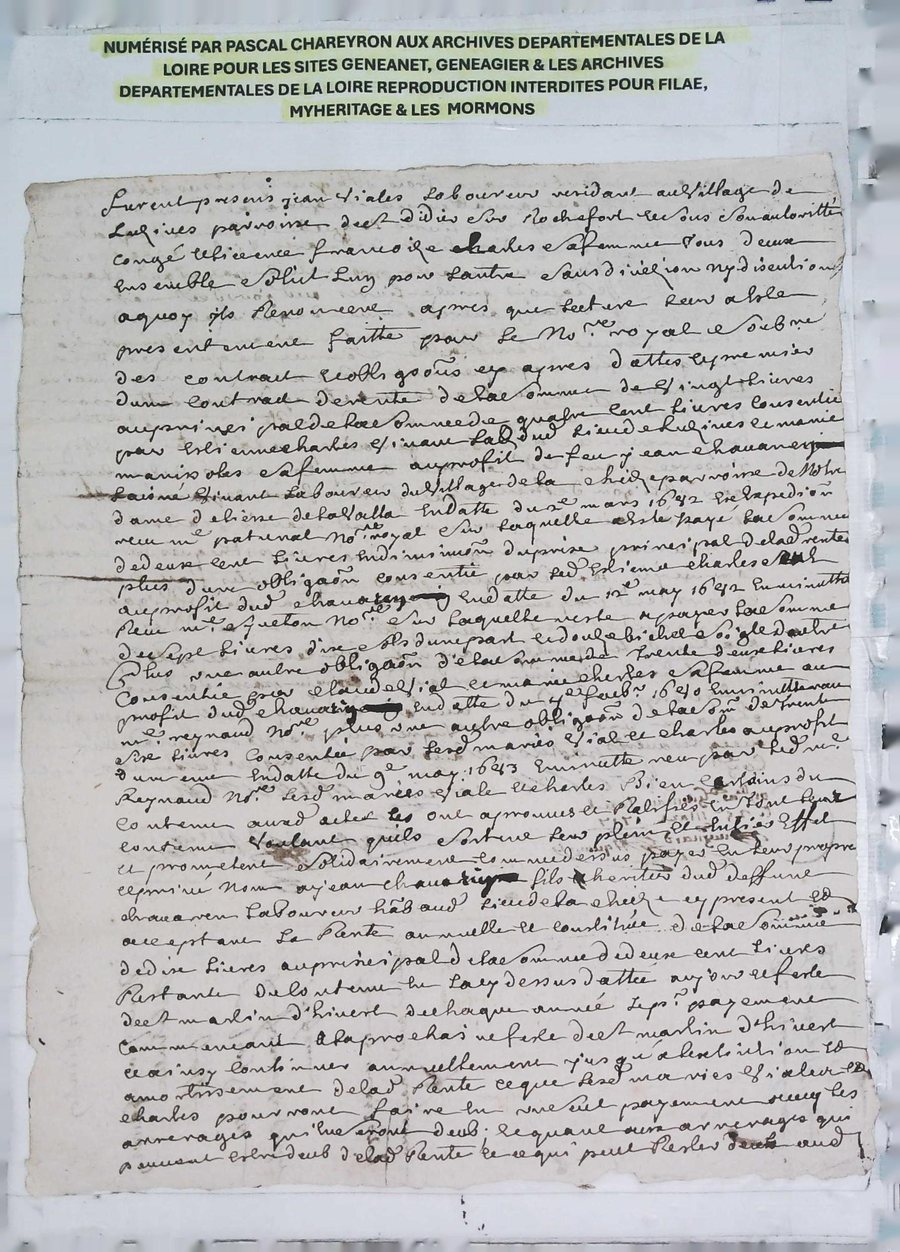 NUMÉRISÉ PAR PASCAL CHAREYRON AUX ARCHIVES DEPARTEMENTALES DE LA
LOIRE POUR LES SITES GENEANET, GENEAGIER & LES ARCHIVES
DEPARTEMENTALES DE LA LOIRE REPRODUCTION INTERDITES POUR FILAE,
MYHERITAGE & LES MORMONS
furent presens jean Viales Laboureur residant au Village de
parroisse de St didier sur Rochefort et sous son autoritté
congé et licence francoise charles sa femme tous deux
ensemble et solid Lun pour Lautre sans division ny discution
a quoy ils Renoncent apres que Lecture leur a este
presentement faitte pour le No.re royal soubne
des contract et obligaons cy apres dattes le premier
dune contract de rente de la somme de Vingt Livres
au principal de la somme de quatre cent Livres consentie
par Estienne charles Vivant Lab dud Lieu de et marie
sa femme au profit de feu jean
Vivant Laboureur du Village de la parroisse de Nostre
dame de la Valla en datte du mars 1652 et expedion
receu me No.re royal sur laquelle a este payé la somme
de deux cent Livres en diminuon du prix principal de lad rente
plus dune obligaon consentie par led Estienne charles
au profit dud en datte du 12e may 1652 en minutte
receu me No.re sur laquelle reste a payer la somme
de sept Livres dix sols dune part et
Plus une autre obligaon de la somme de trente deux Livres
Consentie par claude Vial et marie charles sa femme au
profit dud en datte du 1650 en minutte
me reynaud No.re plus une autre obligaon de la som de trente
six Livres consentie par lesd mariés Vial et charles au profit
en datte du 9e may 1653 en minutte receu par led me
Reynaud No.re lesd mariés Viale et charles Bien certains du
contenu ausd actes les ont aprouves et Ratifiés
contenu Voulant quils sortent leur plein et entier Effet
et promettent solidairement comme dessus payer en leur propre
et prive Nom a jean fils heritier dud deffunt
Laboureur hab aud Lieu de la cy present et
acceptant la Rente annuelle et constituée de la somme
de dix Livres au principal de la somme de deux cent Livres
Restante du contenu en la cy dessus dattée a jour et feste
de St martin d'hivert de chaque année le pr payement
Commencant a la prochaine feste de St martin d'hivert
et ainsy continuer annuellement jusqu'a lextintion et
amortissement de lad Rente ce que lesd maries Viale et
charles pourront faire en un seul payement avec les
arrerages qui en seront deub, et quant aux arrerages qui
peuvent estre deub de lad Rente et ce qui peut Rester deub aud